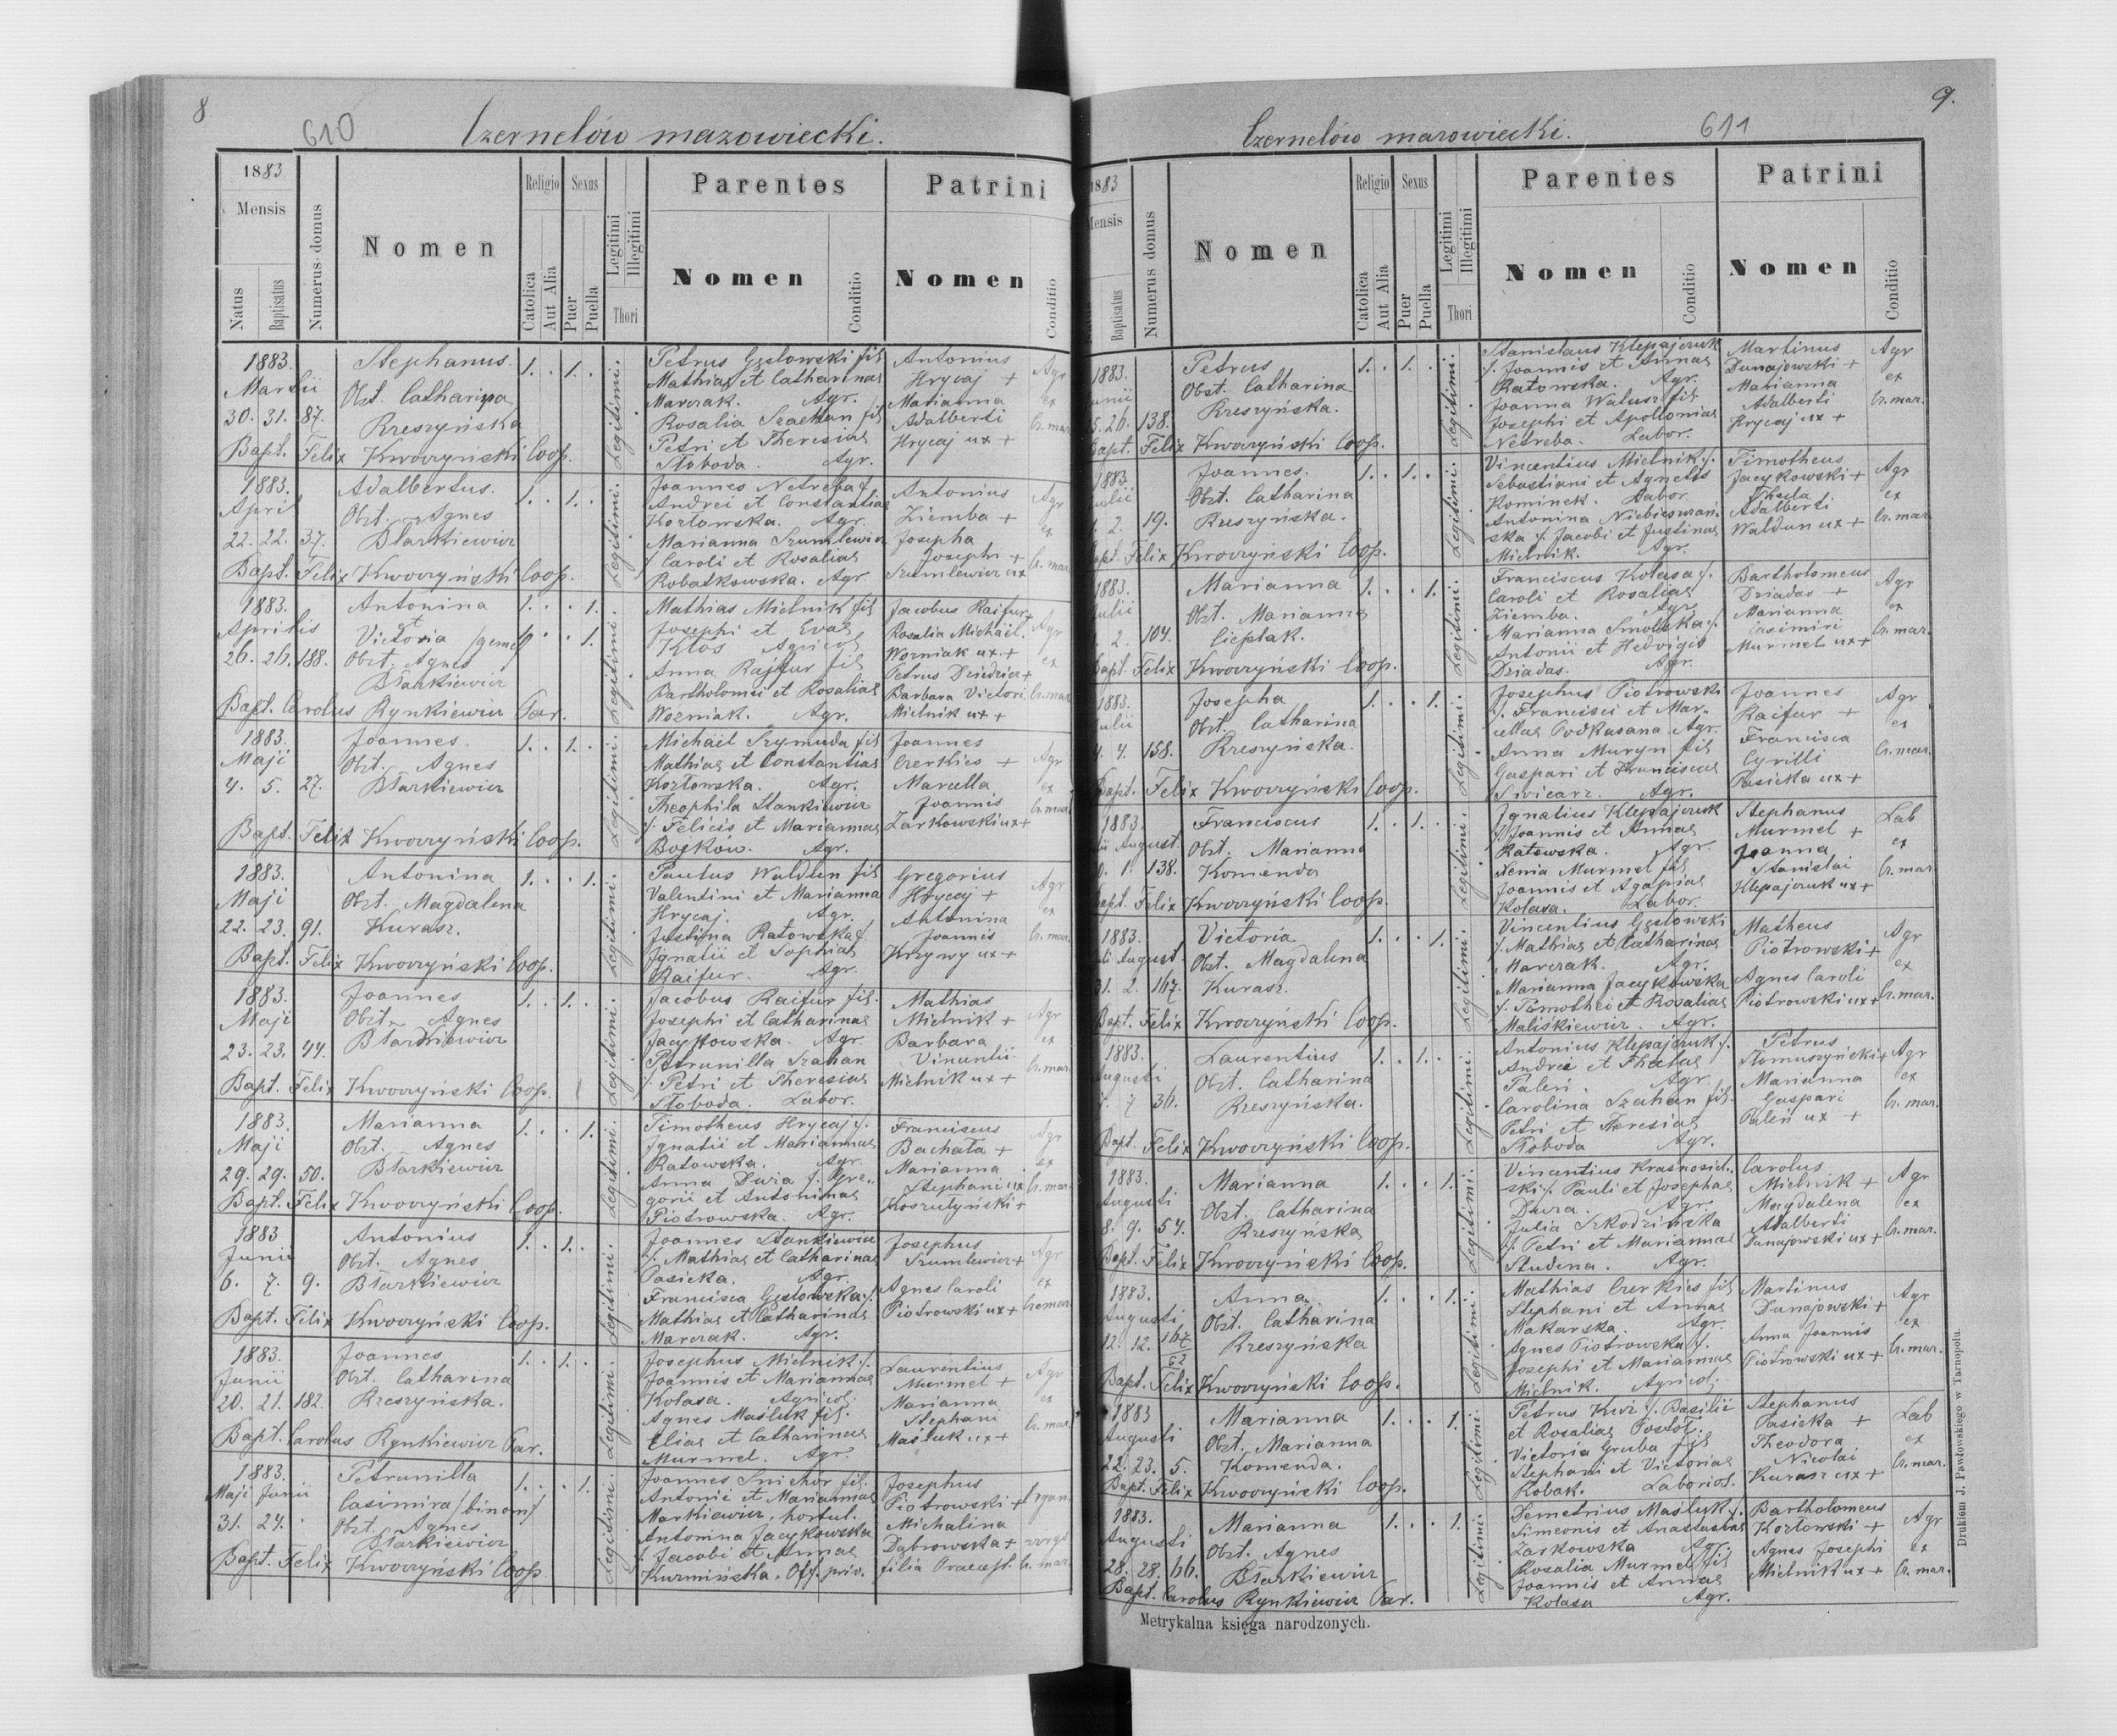 8
610
Czernelów mazowiecki.
1883
Mensis
Natus
Baptisatus
Numerus domus
Nomen
Religio
Catolica
Aut Alia
Sexus
Puer
Puella
Legitimi
Illegitimi
Thori
Parentes
Nomen
Conditio
Patrini
Nomen
Conditio
1883.
Martii
30. 31. 87.
Stephanus
Obst. Catharina
Rzeszyńska
1. . 1. .
Legitimi.
Petrus Gęslowski fil
Mathiae et Catharinae
Marczak. Agr.
Rosalia Szachan fil
Petri et Theresiae
Słoboda. Agr.
Antonius
Hrycaj +
Marianna
Adalberti
Hrycaj ux +
Agr
ex
Cr. mar.
Bapt. Felix Kwoczyński Coop.
1883.
April
22. 22. 37.
Adalbertus.
Obst. Agnes
Błarkiewicz
1. . 1. .
Legitimi.
Joannes Netreba f.
Andrei et Constantiae
Kozłowska. Agr.
Marianna Szumlewicz
f. Caroli et Rosaliae
Robatkowska. Agr
Antonius
Ziemba +
Josepha
Josephi +
Szumlewicz ux
Agr
ex
Cr. mar.
Bapt. Felix Kwoczyński Coop.
1883.
Aprilis
26. 26. 188.
Antonina
et
Victoria /gemel/
Obst. Agnes
Błarkiewicz
1. . . 1.
1. . . 1.
Legitimi.
Mathias Mielnik fil
Josephi et Evae
Kłos Agricol
Anna Rajfur fil
Bartholomei et Rosaliae
Woźniak. Agr.
Jacobus Raifur+
Rosalia Michael.
Woźniak ux +
Petrus Dziedzic+
Barbara Victori
Mielnik ux +
Agr
ex
Cr. mar
Bapt. Carolus Rynkiewicz Par.
1883.
Maji
4. 5. 27.
Joannes.
Obst. Agnes
Błarkiewicz
1. . 1. .
Legitimi.
Michael Szymuda fil
Mathiae et Constantiae
Kozłowska. Agr.
Theophila Stankiewicz
f. Felicis et Mariannae
Bojków. Agr.
Joannes
Czerkies +
Marcella
Joannis
Zarkowski ux+
Agr
ex
Cr. mar.
Bapt. Felix Kwoczyński Coop.
1883.
Maji
22. 23. 91.
Antonina
Obst. Magdalena
Kurasz.
1. . . 1.
Legitimi.
Paulus Waldun fil
Valentini et Marianna
Hrycaj. Agr.
Justina Ratowska f
Ignatii et Sophiae
Raifur. Agr.
Gregorius
Hrycaj +
Antonina
Joannis
Krzywy ux +
Agr
ex
Cr. mar.
Bapt. Felix Kwoczyński Coop.
1883.
Maji
23. 23. 44.
Joannes
Obst. Agnes
Błarkiewicz
1. . 1. .
Legitimi.
Jacobus Raifur fil.
Josephi et Catharinae
Jacykowska. Agr.
Petrunilla Szahan
f. Petri et Theresiae
Słoboda. Labor.
Mathias
Mielnik +
Barbara
Vincentii
Mielnik ux +
Agr
ex
Cr. mar.
Bapt. Felix Kwoczyński Coop.
1883.
Maji
29. 29. 50.
Marianna
Obst. Agnes
Błarkiewicz
1. . . 1.
Legitimi.
Timotheus Hrycaj f.
Ignatii et Mariannae
Ratowska. Agr.
Anna Dwia f. Gre-
gorii et Antoninae
Piotrowska. Agr.
Franciscus
Bachata +
Marianna
Stephani ux
Koszutyński +
Agr
ex
Cr. mar.
Bapt. Felix Kwoczyński Coop.
1883
Junii
6. 7. 9.
Antonius
Obst. Agnes
Błarkiewicz
1. . 1. .
Legitimi.
Joannes Stankiewicz
f. Mathiae et Catharinae
Pasieka. Agr.
Francisca Gęslowska f.
Mathiae et Catharinae
Marczak. Agr.
Josephus
Szumlewicz+
Agnes Caroli
Piotrowski ux +
Agr
ex
Cr. mar.
Bapt. Felix Kwoczyński Coop.
1883.
Junii
20. 21. 182.
Joannes
Obst. Catharina
Rzeszyńska.
1. . 1. .
Legitimi.
Josephus Mielnik f.
Joannis et Mariannae
Kolasa. Agricol.
Agnes Maśluk fil.
Eliae et Catharinae
Murmel. Agr.
Laurentius
Murmel +
Marianna
Stephani
Maśluk ux +
Agr
ex
Cr. mar.
Bapt. Carolus Rynkiewicz Par.
1883.
Maji Junii
31. 24.
Petrunilla
Casimira /binom/
Obst. Agnes
Błarkiewicz
1. . . 1.
Legitimi.
Joannes Snichor fil.
Antonii et Mariannae
Markiewicz, hortul.
Antonina Jacykowska
f. Jacobi et Annae
Kurmińska. Off. priv.
Josephus
Piotrowski +
Michalina
Dąbrowska +
filia Praecept.
Organ.
Cr. mar.
Bapt. Felix Kwoczyński Coop
9.
611
Czernelów mazowiecki.
1883
Mensis
Baptisatus
Numerus domus
Nomen
Religio
Catolica
Aut Alia
Sexus
Puer
Puella
Legitimi
Illegitimi
Thori
Parentes
Nomen
Conditio
Patrini
Nomen
Conditio
1883.
unii
5. 26. 138.
Petrus
Obst. Catharina
Rzeszyńska.
1. . 1. .
Legitimi.
Stanislaus Klepajczuk
f. Joannis et Annae
Ratowska. Agr.
Joanna Walusz fil
Josephi et Apolloniae
Netreba. Labor.
Martinus
Dunajowski +
Marianna
Adalberti
Hrycaj ux +
Agr
ex
Cr. mar.
Bapt. Felix Kwoczyński Coop.
1883.
ulii
2. 19.
Joannes.
Obst. Catharina
Rzeszyńska.
1. . 1. .
Legitimi.
Vincentius Mielnik f.
Sebastiani et Agnetis
Kominek. Labor.
Antonina Niebieszczań-
ska f. Jacobi et Justinae
Mielnik. Agr.
Timotheus
Jacykowski +
Thecla
Adalberti
Waldun ux +
Agr
ex
Cr. mar
Bapt. Felix Kwoczyński Coop.
1883.
ulii
2. 104.
Marianna
Obst. Marianna
Cieplak.
1. . . 1.
Legitimi.
Franciscus Kolasa f.
Caroli et Rosaliae
Ziemba. Agr
Marianna Smolska f.
Antonii et Hedvigis
Dziadas. Agr.
Bartholomeus
Dziadas +
Marianna
Casimiri
Murmel ux +
Agr
ex
Cr. mar.
Bapt. Felix Kwoczyński Coop.
1883.
ulii
4. 4. 158.
Josepha
Obst. Catharina
Rzeszyńska.
1. . . 1.
Legitimi.
Josephus Piotrowski
f. Francisci et Mar-
cellae Podkasana. Agr.
Anna Muryn fil
Gaspari et Franciscae
Siwicarz. Agr.
Joannes
Raifur +
Francisca
Cyrilli
Pasieka ux +
Agr
ex
Cr. mar.
Bapt. Felix Kwoczyński Coop.
1883.
ii August.
0. 1. 138.
Franciscus
Obst. Marianna
Komenda
1. . 1. .
Legitimi.
Ignatius Klepajczuk
f. Joannis et Annae
Ratowska. Agr.
Xenia Murmel fil
Joannis et Agapiae
Kolasa. Labor.
Stephanus
Murmel +
Joanna
Stanislai
Klepajczuk ux +
Lab
ex
Cr. mar.
Bapt. Felix Kwoczyński Coop.
1883.
lii August.
31. 2. 167.
Victoria
Obst. Magdalena
Kurasz.
1. . . 1.
Legitimi.
Vincentius Gęslowski
f. Mathiae et Catharinae
Marczak. Agr.
Marianna Jacykowska
f. Timothei et Rosaliae
Maliśkiewicz. Agr.
Matheus
Piotrowski +
Agnes Caroli
Piotrowski ux +
Agr
ex
Cr. mar.
Bapt. Felix Kwoczyński Coop.
1883.
Augusti
7 36.
Laurentius
Obst. Catharina
Rzeszyńska.
1. . 1. .
Legitimi.
Antonius Klepajczuk f.
Andrei et Theclae
Paleń. Agr
Carolina Szahan fil
Petri et Theresiae
Słoboda Agr.
Petrus
Stomuszyński +
Marianna
Gaspari
Paleń ux +
Agr
ex
Cr. mar.
Bapt. Felix Kwoczyński Coop.
1883.
Augusti
8. 9. 54.
Marianna
Obst. Catharina
Rzeszyńska
1. . . 1.
Legitimi.
Vincentius Krasnosiel-
ski f. Pauli et Josephae
Dura. Agr.
Julia Szkodzińska
f. Petri et Mariannae
Studena. Agr.
Carolus
Mielnik +
Magdalena
Adalberti
Dunajowski ux +
Agr
ex
Cr. mar.
Bapt. Felix Kwoczyński Coop.
1883.
Augusti
12. 12. 167/62
Anna
Obst. Catharina
Rzeszyńska
1. . . 1.
Legitimi.
Mathias Czerkies fil
Stephani et Annae
Makarska. Agr.
Agnes Piotrowska f.
Josephi et Mariannae
Mielnik. Agricol.
Martinus
Dunajowski +
Anna Joannis
Piotrowski ux +
Agr
ex
Cr. mar.
Bapt. Felix Kwoczyński Coop.
1883
Augusti
22. 23. 5.
Marianna
Obst. Marianna
Komenda.
1. . . 1.
Legitimi.
Petrus Kwi f. Basilii
et Rosaliae Postoł.
Victoria Gruba fil
Stephani et Victoriae
Robak. Laborios.
Stephanus
Pasieka +
Theodora
Nicolai
Kurasz ux +
Lab
ex
Cr. mar.
Bapt. Felix Kwoczyński Coop.
1883.
Augusti
28. 28. 66.
Marianna
Obst. Agnes
Błarkiewicz
1. . . 1.
Legitimi.
Demetrius Maśluk f.
Simeonis et Anastasiae
Zarkowska Agr.
Rosalia Murmel fil
Joannis et Annae
Kolasa Agr.
Bartholomeus
Kozłowski +
Agnes Josephi
Mielnik ux +
Agr
ex
Cr. mar.
Bapt. Carolus Rynkiewicz Par.
Metrykalna księga narodzonych.
Drukiem J. Pawłowskiego w Tarnopolu.